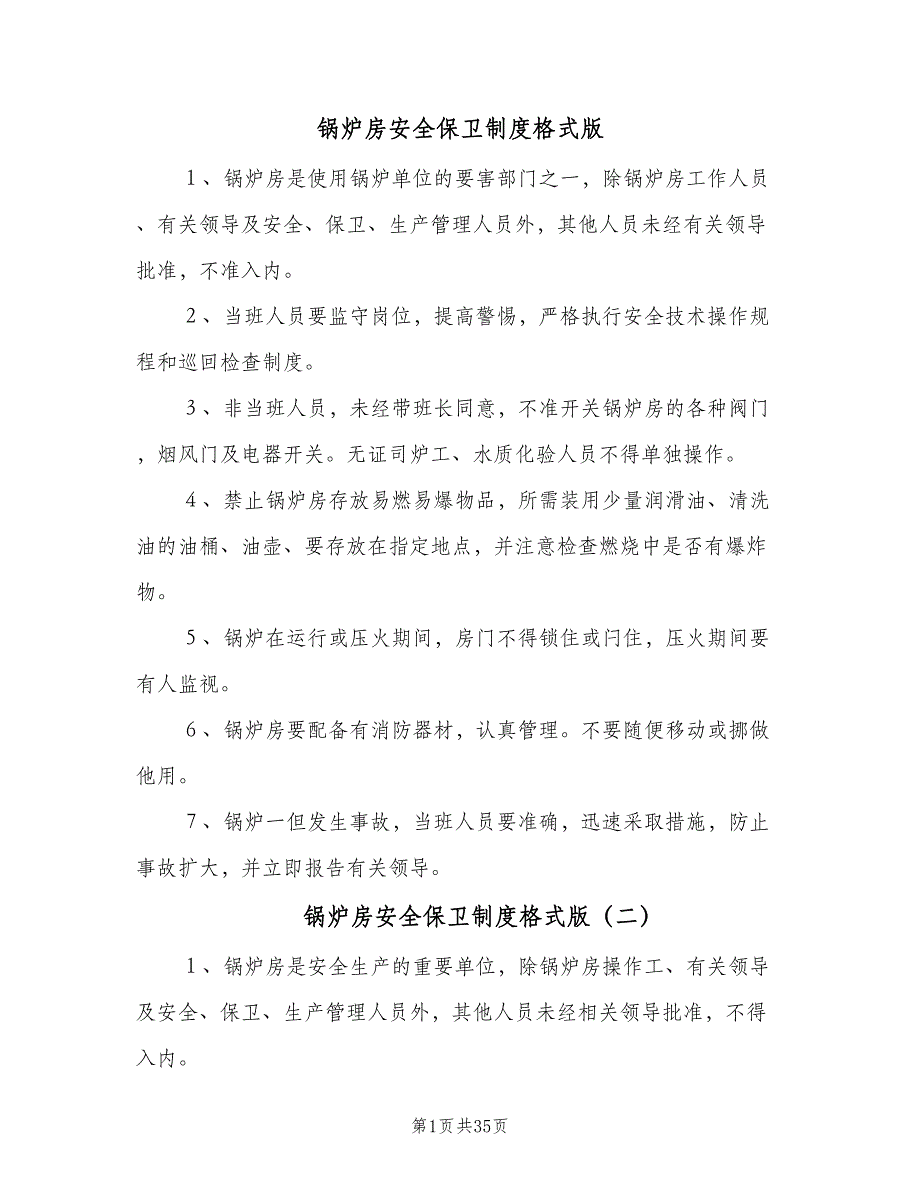 锅炉房安全保卫制度格式版
1、锅炉房是使用锅炉单位的要害部门之一，除锅炉房工作人员
、有关领导及安全、保卫、生产管理人员外，其他人员未经有关领导
批准，不准入内。
2、当班人员要监守岗位，提高警惕，严格执行安全技术操作规
程和巡回检查制度。
3、非当班人员，未经带班长同意，不准开关锅炉房的各种阀门
，烟风门及电器开关。无证司炉工、水质化验人员不得单独操作。
4、禁止锅炉房存放易燃易爆物品，所需装用少量润滑油、清洗
油的油桶、油壶、要存放在指定地点，并注意检查燃烧中是否有爆炸
物。
5、锅炉在运行或压火期间，房门不得锁住或闩住，压火期间要
有人监视。
6、锅炉房要配备有消防器材，认真管理。不要随便移动或挪做
他用。
7、锅炉一但发生事故，当班人员要准确，迅速采取措施，防止
事故扩大，并立即报告有关领导。
锅炉房安全保卫制度格式版（二）
1、锅炉房是安全生产的重要单位，除锅炉房操作工、有关领导
及安全、保卫、生产管理人员外，其他人员未经相关领导批准，不得
入内。
第1页共35页